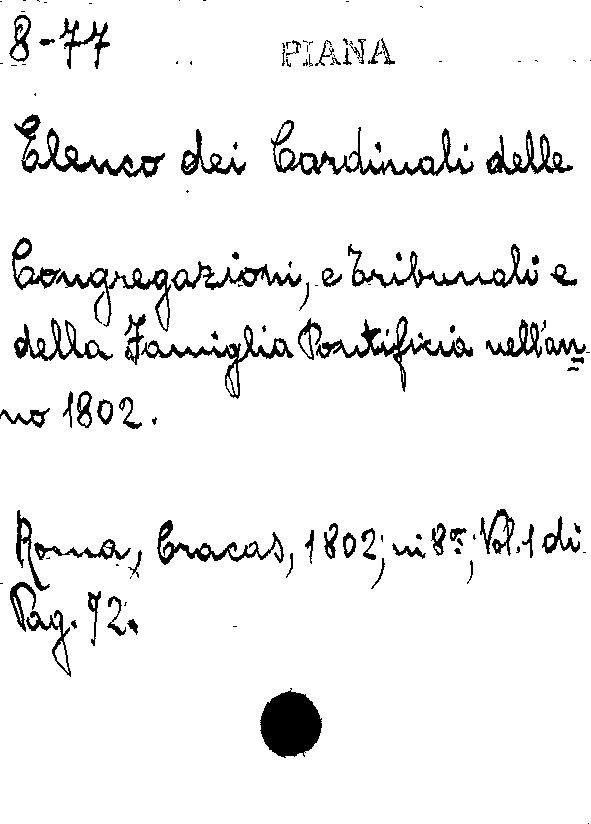 8-77 PIANA
Elenco dei Cardinali delle
Congregazioni, e Tribunali e
della Famiglia Pontificia nell'an=
no 1802.
Roma, Cracas, 1802; in 8º; Vol. 1 di
Pag. 72.